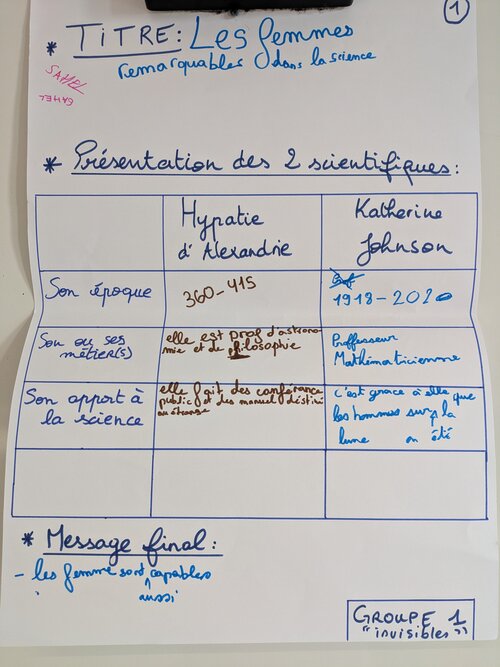 1
* TITRE : Les femmes
remarquables dans la science
SAMEL
* Présentation des 2 scientifiques :
Hypatie
d'Alexandrie
Katherine
Johnson
Son époque
360-415
1918-2020
Son ou ses
métier(s)
elle est prof d'astrono-
mie et de filosophie
Proffesseur
Mathématicienne
Son apport à
la science
elle fait des conférance
public et des manuel déstiné
c'est grace à elle que
les hommes sur la
lune on été
* Message final :
- les femme sont capables
aussi
GROUPE 1
"invisibles"